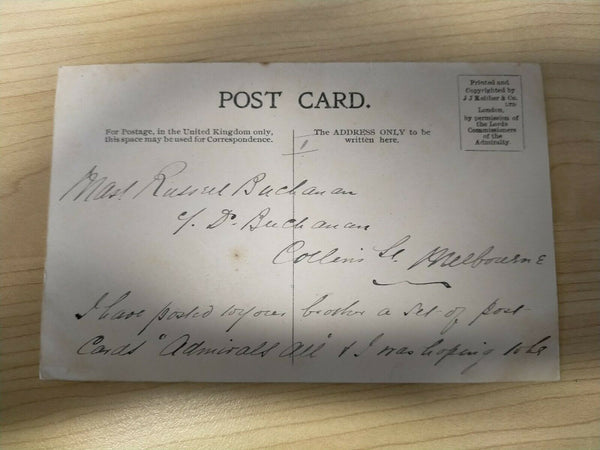 POST CARD.
For Postage, in the United Kingdom only,
this space may be used for Correspondence.
The ADDRESS ONLY to be
written here.
Printed and
Copyrighted by
J J Keliher & Co.
LTD
London,
by permission of
the Lords
Commissioners
of the
Admiralty.
Mast Russell Buchanan
c/ Dr Buchanan
Collins St. Melbourne
I have posted to your brother a set of post
Cards "Admirals all" & I was hoping to be